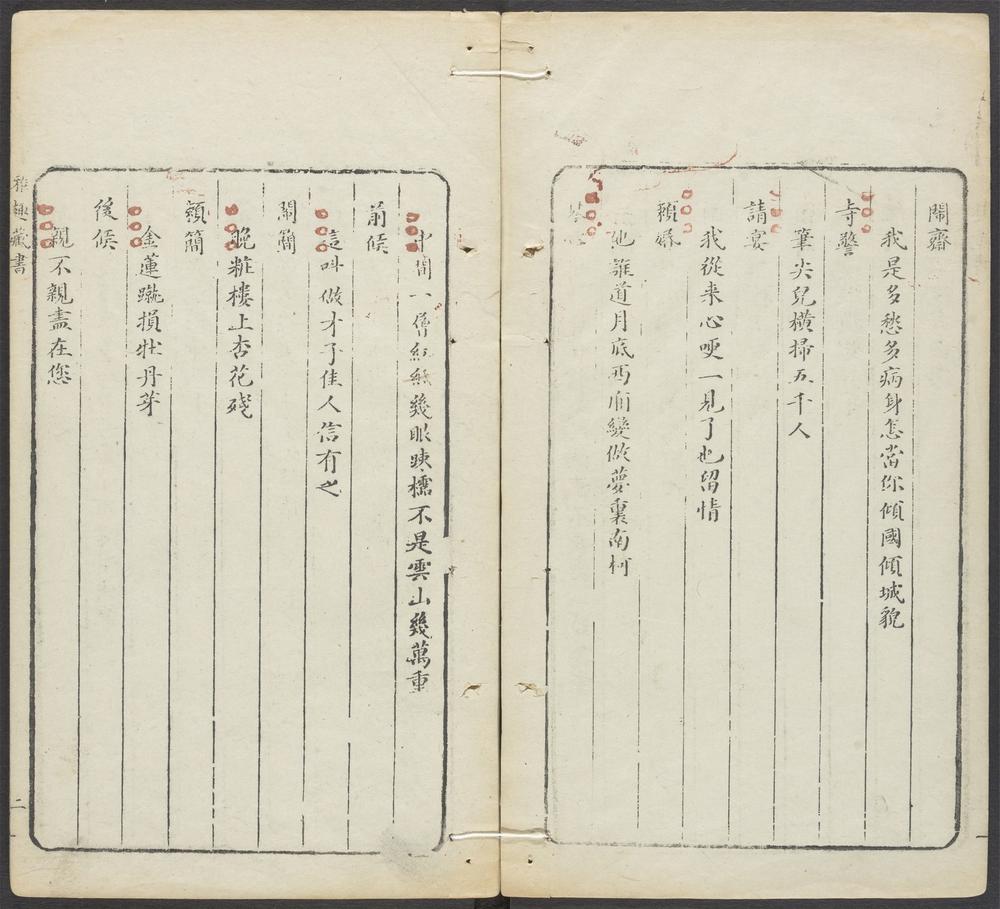 鬧齋
我是多愁多病身怎當你傾國傾城貌
寺警
筆尖兒橫掃五千人
請宴
我從来心哽一見了也留情
賴婚
他誰道月底西廂變做夢裏南柯
中間一層紅紙幾眼踈櫺不是雲山幾萬重
前候
這叫做才子佳人信有之
鬧簡
晚粧樓上杏花殘
賴簡
金蓮蹴損牡丹芽
後候
親不親盡在您
雅趣藏書
二